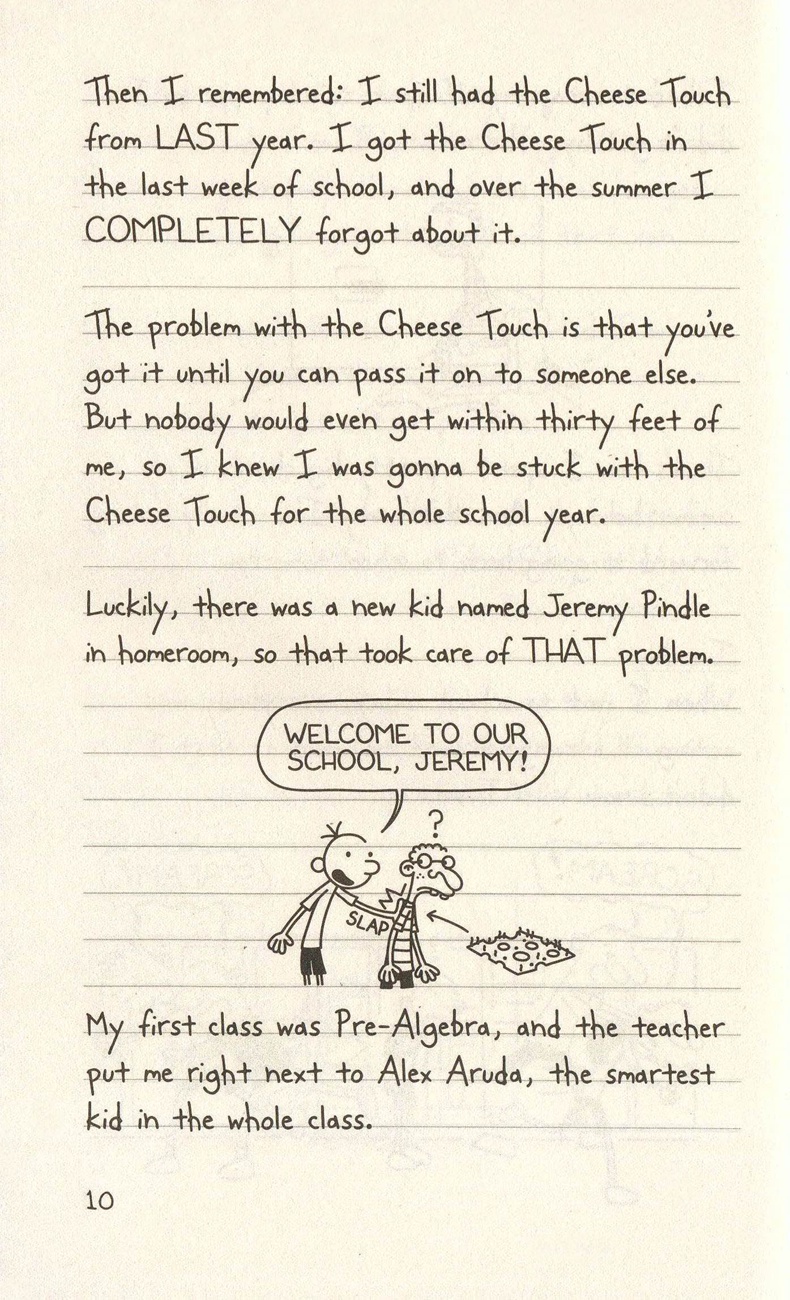 Then I remembered: I still had the Cheese Touch
from LAST year. I got the Cheese Touch in
the last week of school, and over the summer I
COMPLETELY forgot about it.
The problem with the Cheese Touch is that you've
got it until you can pass it on to someone else.
But nobody would even get within thirty feet of
me, so I knew I was gonna be stuck with the
Cheese Touch for the whole school year.
Luckily, there was a new kid named Jeremy Pindle
in homeroom, so that took care of THAT problem.
WELCOME TO OUR
SCHOOL, JEREMY!
?
SLAP
My first class was Pre-Algebra, and the teacher
put me right next to Alex Aruda, the smartest
kid in the whole class.
10